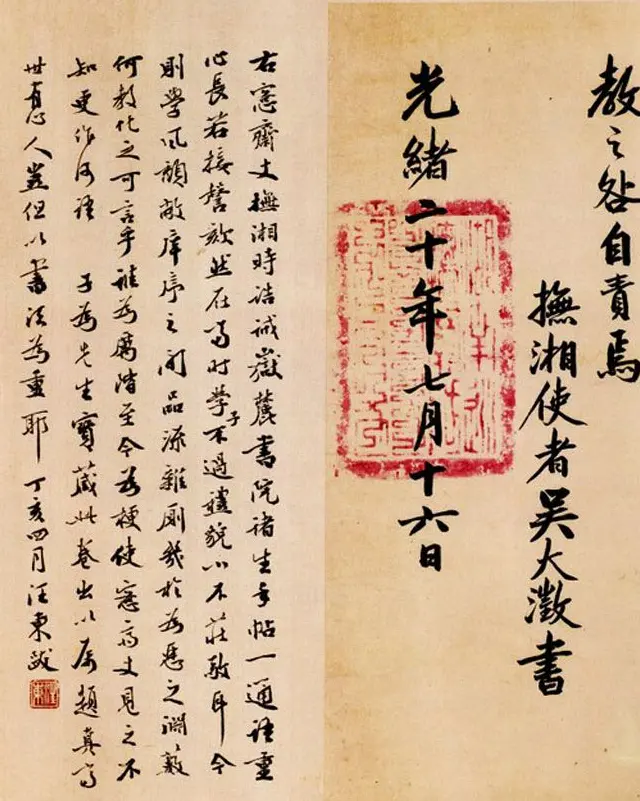 教之咎自責焉
撫湘使者吳大澂書
光緒二十年七月十六日
右愙齋丈撫湘時誥誡嶽麓書院諸生手帖一通語重
心長若接謦欬然在爾時學子不過禮貌小不莊敬耳今
則學風頹敝庠序之間品流雜廁幾於為惡之淵藪
何教化之可言乎誰為厲階至今為梗使愙齋丈見之不
知更作何語 子為先生寶藏此卷出以屬題真高
世直人豈但以書法為重耶 丁亥四月汪東跋